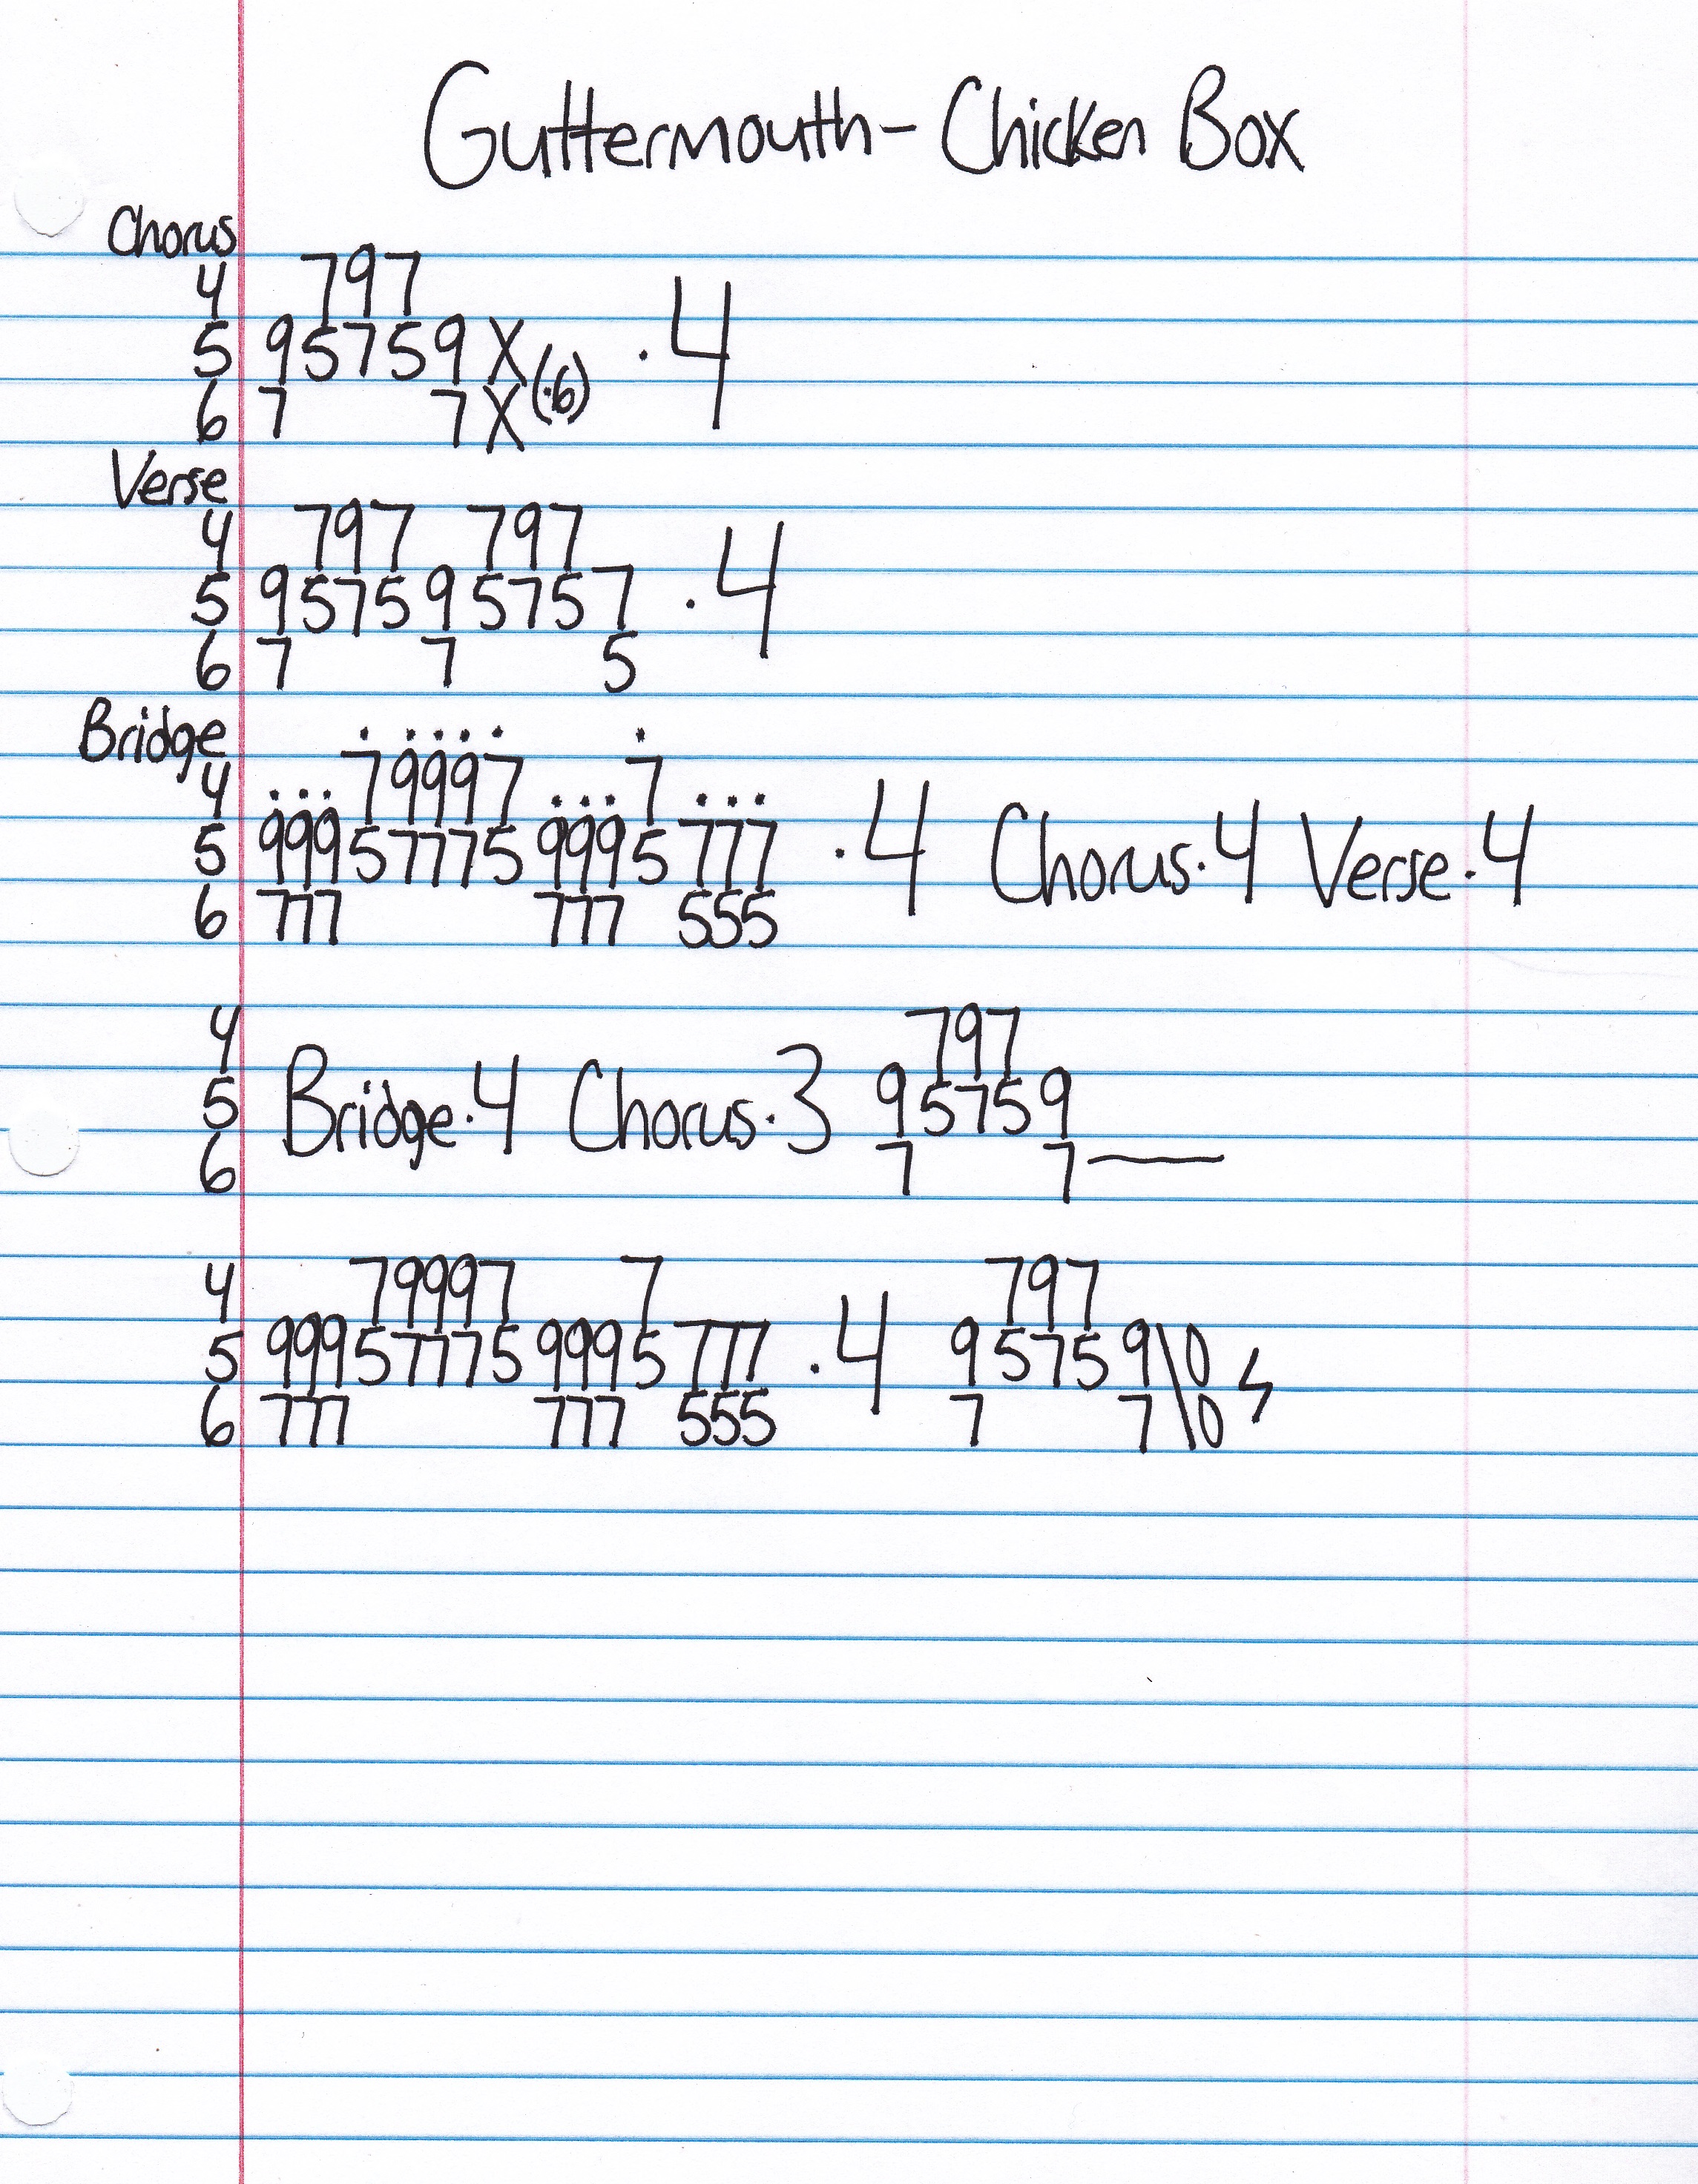 Guttermouth - Chicken Box
Chorus
4 797
5 95759X (·6) ·4
6 7 7X
Verse
4 797 797
5 957595757 ·4
6 7 7 5
Bridge . .... .
4 ... 79997 ... 7 ...
5 99957775 9995777 ·4 Chorus·4 Verse·4
6 777 777 555
4 797
5 Bridge·4 Chorus·3 95759
6 7 7—
4 79997 7 797
5 99957775 9995777 ·4 95759\0
6 777 555 7 7\0